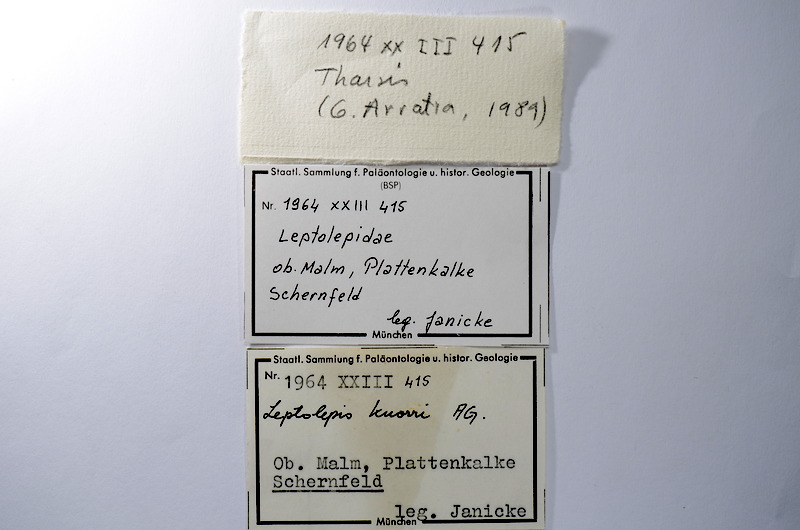 1964 XX III 415
Tharsis
(G. Arratia, 1989)
Staatl. Sammlung f. Paläontologie u. histor. Geologie
(BSP)
Nr. 1964 XXIII 415
Leptolepidae
ob. Malm, Plattenkalke
Schernfeld
leg. Janicke
München
Staatl. Sammlung f. Paläontologie u. histor. Geologie
Nr. 1964 XXIII 415
Leptolepis knorri AG.
Ob. Malm, Plattenkalke
Schernfeld
leg. Janicke
München